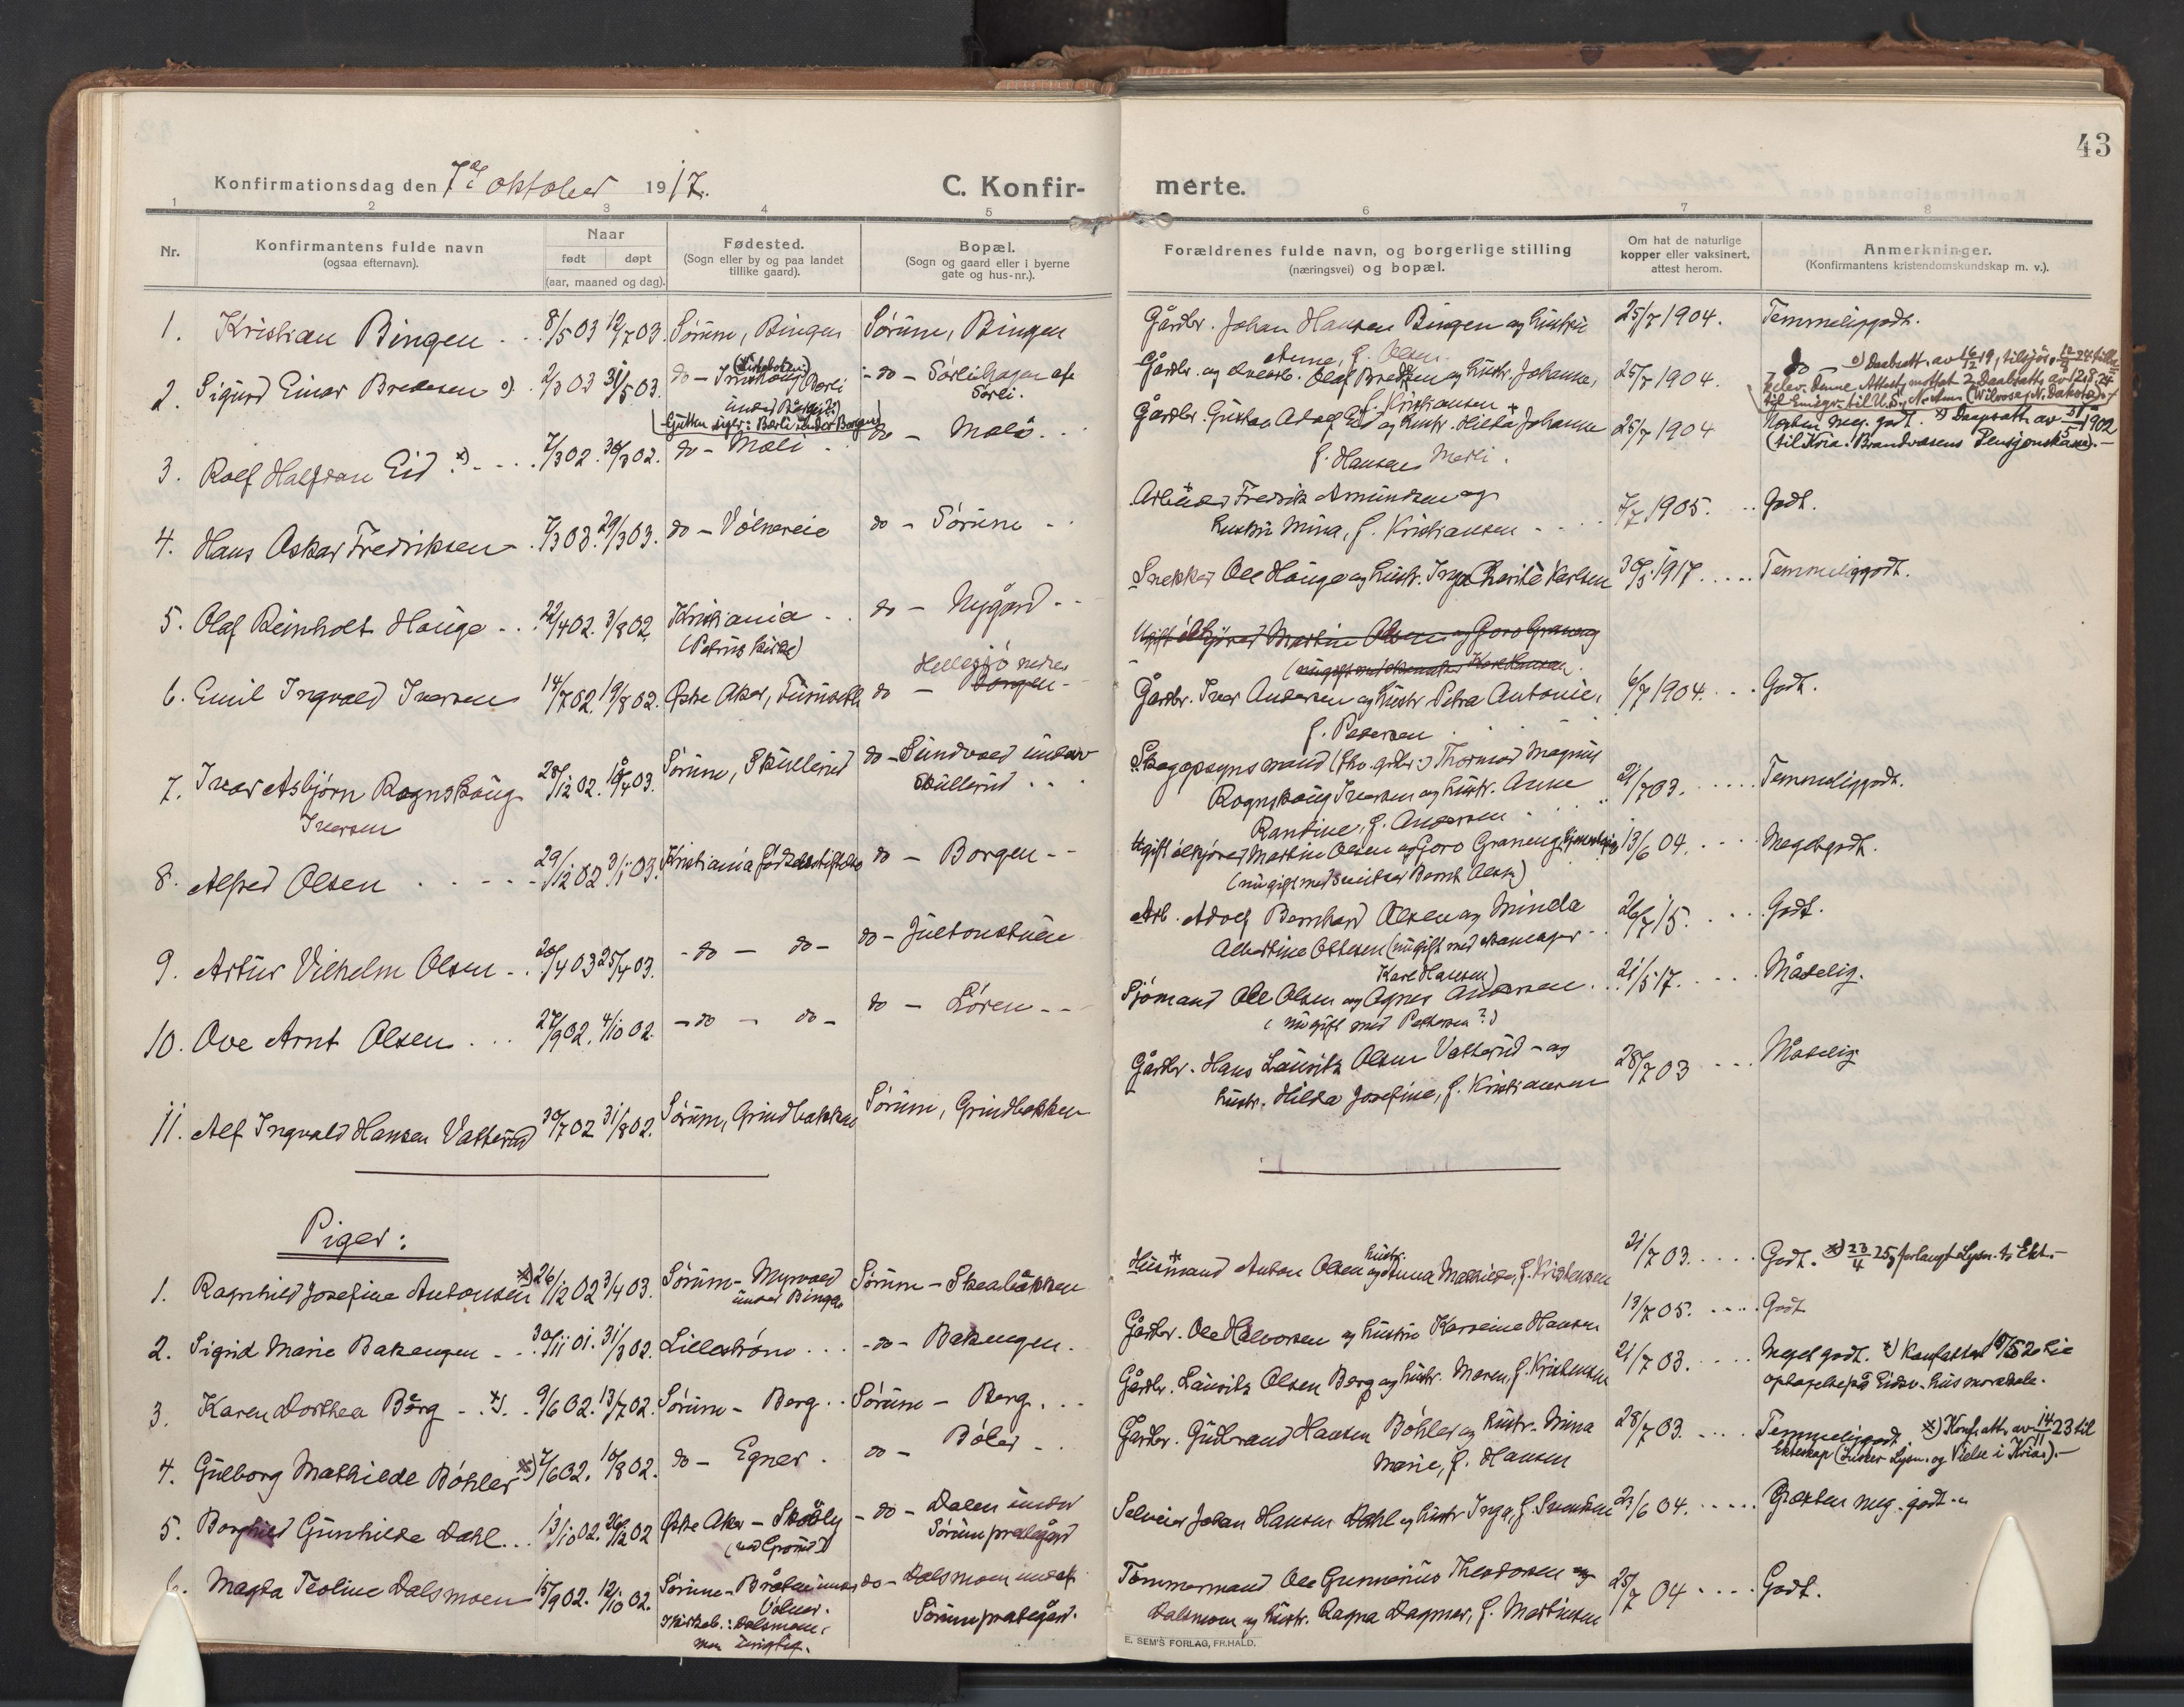 43
Konfirmationsdag den 7de oktober 1917.
C. Konfir-
merte.
1 2 3 4 5 6 7 8
Nr.
Konfirmantens fulde navn
(ogsaa efternavn).
Naar
født døpt
(aar, maaned og dag).
Fødested.
(Sogn eller by og paa landet
tillike gaard).
Bopæl.
(Sogn og gaard eller i byerne
gate og hus-nr.).
Forældrenes fulde navn, og borgerlige stilling
(næringsvei) og bopæl.
Om hat de naturlige
kopper eller vaksinert,
attest herom.
Anmerkninger.
(Konfirmantens kristendomskundskap m. v.).
1. Kristian Bingen 8/5 03 12/7 03. Sørum, Bingen Sørum, Bingen
Gårdbr. Johan Hansen Bingen og hustru 25/7 1904. Temmelig godt.
2. Sigurd Einar Bredesen 2/3 03 31/5 03. do - do - Sørlihagen af
Sørli.
Gårdbr. og Olaf Bredesen og hustr. Johanne, 25/7 1904.
f. Kristiansen
3. Rolf Halfdan Eid 7/3 02. 30/3 02. do - Mæli do -
Gårdbr. Gustav Adolf Eid og hustr. Hilda Johanne 25/7 1904 Noksen meg. godt.
f. Hansen
(til Kria. Brandvæsens Pensjonskasse). -
4. Hans Oskar Fredriksen 7/3 03. 29/3 03. do - Vølnereie do - Sørum
Arbeider Fredrik Amundsen og
hustru Mina, f. Kristiansen 7/7 1905. Godt.
5. Olaf Reinholt Hauge 22/4 02. 3/8 02 Kristiania do - Nygård
(Petrus kirke)
Snekker Ole Hauge og hustr. Inga Charite Karlsen 30/5 1917. Temmelig godt.
Martin Olsen og Goro Graneng
6. Emil Ingvald Iversen 14/7 02. 19/8 02. Østre Aker, Furuseth do - Hellesjø nedre
Borgen
Gårdbr. Iver Andersen og hustr. Petra Antonie, 6/7 1904. Godt.
f. Pedersen
7. Ivar Asbjørn Rognskaug 28/12 02. 13/4 03. Sørum, Skullerud do - Sundvold under
Iversen Skullerud
Skogopsynsmand Thormod Magnus
Rognskaug Iversen og hustr. Anne 21/7 03. Temmelig godt.
Rantine, f. Andersen
8. Alfred Olsen 29/12 02 3/1 03. Kristiania Fødselsstiftelse do - Borgen
Ugift ølkjører Martin Olsen og Goro Graneng 13/6 04. Meget godt.
(nu gift med sveitser Bernt Olsen)
9. Artur Vilhelm Olsen 20/4 03 25/4 03. - do - do - do - Jultonstuen
Arb. Adolf Bernhard Olsen og Minda 26/7 15. Godt.
Albertine Ottesen (nu gift med
Karl Hansen)
10. Ove Arnt Olsen 27/9 02. 4/10 02. - do - do - do - Løren
Sjømand Ole Olsen og Agnes Andersen 21/5 17. Mådelig.
(nu gift med Pettersen?)
11. Alf Ingvald Hansen Vatterud 30/7 02 31/8 02. Sørum, Grindbakken Sørum, Grindbakken
Gårdbr. Hans Lauritz Olsen Vatterud - og 28/7 03 Mådelig
hustr. Hilda Josefine, f. Kristiansen
Piger:
1. Ragnhild Josefine Antonsen 26/12 02 3/4 03. Sørum - Myrvold Sørum - Skeabakken
under Bingen
Husmand Anton Olsen og hustr. Anna Mathilde, f. Kristensen 21/7 03. Godt. 23/4 25 forlangt Lysn. til Ekt. -
2. Sigrid Marie Bakengen 30/11 01. 31/3 02. Lillestrøm - do - Bakengen.
Gårdbr. Ole Halvorsen og hustru Karoline Hansen 13/7 05. Godt
3. Karen Dorthea Berg 9/6 02. 13/7 02. Sørum - Berg Sørum - Berg.
Gårdbr. Lauritz Olsen Berg og hustr. Maren, f. Kristensen 21/7 03. Meget godt.
optagelse på Eidsv. husmorskole.
4. Gulborg Mathilde Bøhler 7/6 02. 10/8 02. do - Egner do - Bøler
Gårdbr. Gudbrand Hansen Bøhler og hustr. Mina 28/7 03. Temmelig godt. Konf.att. av 14/11 23 til
Marie, f. Hansen
Ekteskap (ønsker Lysn. og Vielse i Kria). -
5. Borghild Gunhilde Dahl 13/10 02. 26/12 02 Østre Aker - Skøbly - do - Dalen under
(ved Grorud) Sørum prestegård
Selveier Johan Hansen Dahl og hustr Inga, f. Svendsen 23/6 04. Noksen meg. godt.
6. Magda Teoline Dalsmoen 15/9 02. 12/10 02. Sørum - Bråten under do - Dalsmoen under
Vølner. Sørum prestegård.
Kirkeb.: Dalsmoen,
men urigtig.
Tømmermand Ole Gunnerius Theodorsen
Dalsmoen og hustr. Ragna Dagmar, f. Martinsen 25/7 04 Godt.
E. SEM'S FORLAG, FR.HALD.